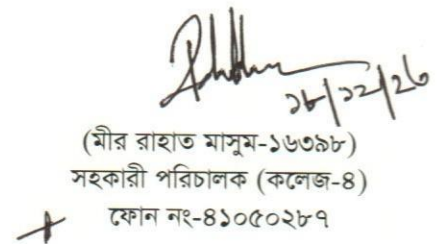 ১৮/১২/২৩
(মীর রাহাত মাসুম-১৬৩৯৮)
সহকারী পরিচালক (কলেজ-৪)
ফোন নং-৪১০৫০২৮৭